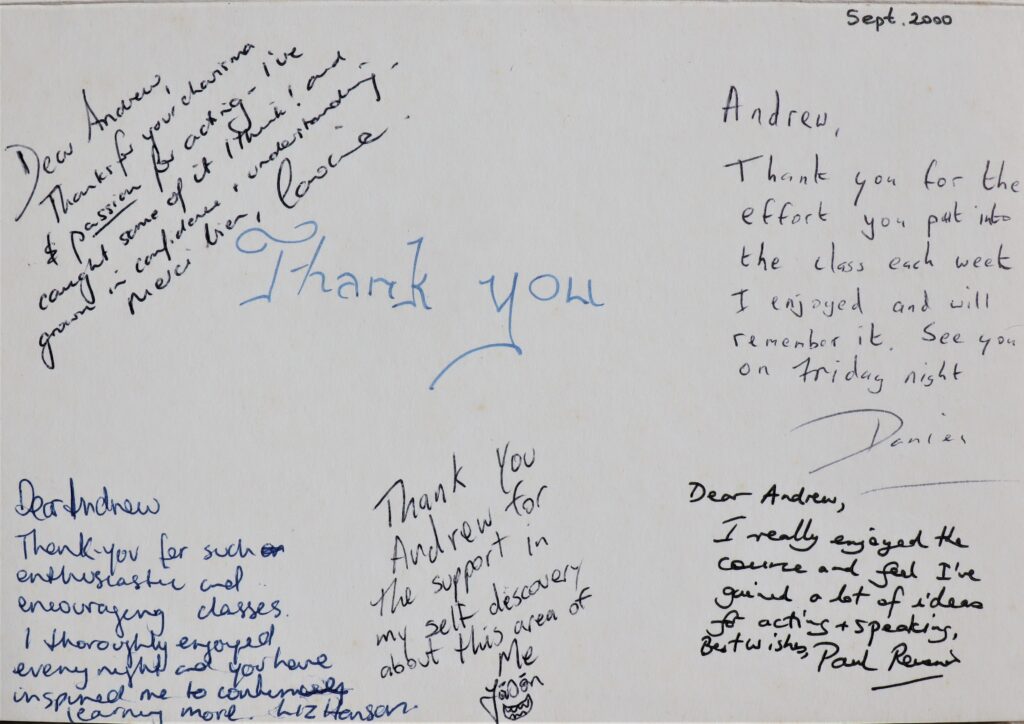 Sept. 2000
Dear Andrew,
Thanks for your charisma
& passion for acting - I've
caught some of it I think! and
grown in confidence & understanding.
Merci bien, Caroline
Thank you
Andrew,
Thank you for the
effort you put into
the class each week
I enjoyed and will
remember it. See you
on Friday night
Daniel
Dear Andrew
Thank-you for such
enthusiastic and
encouraging classes.
I thoroughly enjoyed
every night and you have
inspired me to continue
learning more. Liz Henson.
Thank You
Andrew for
the support in
my self descovery
about this area of
Me
Jason
Dear Andrew,
I really enjoyed the
course and feel I've
gained a lot of ideas
for acting + speaking,
Best wishes, Paul